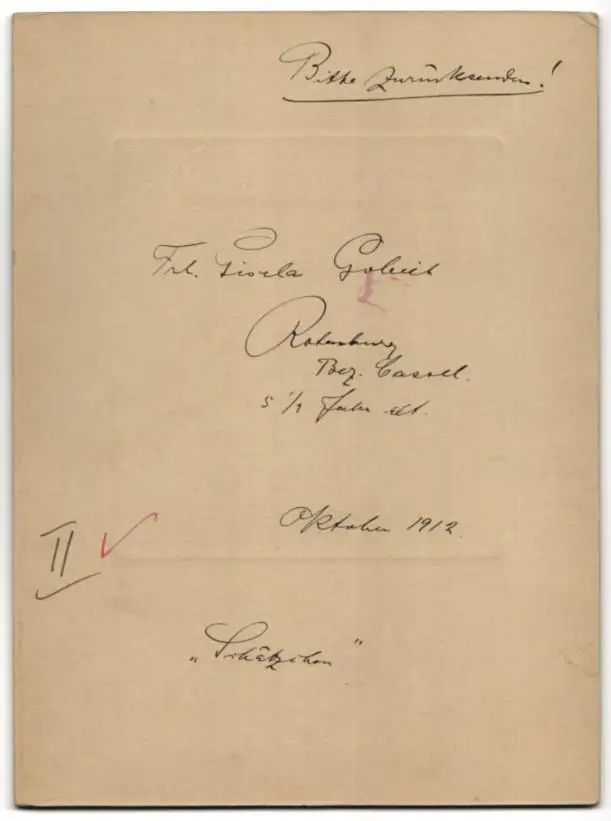 Bitte zurücksenden!
Frl. Gisela
Rotenburg
Bez. Cassel.
5 1/2 Jahr alt.
Oktober 1912.
II
„Schätzchen"